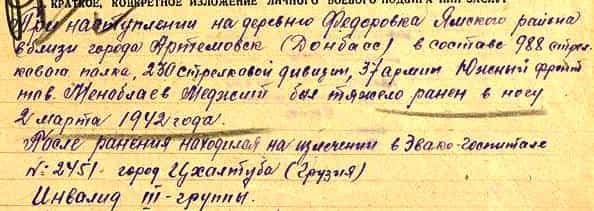 I. КРАТКОЕ, КОНКРЕТНОЕ ИЗЛОЖЕНИЕ ЛИЧНОГО БОЕВОГО ПОДВИГА ИЛИ ЗАСЛУГ
При наступлении на деревню Федоровка Ямского района
вблизи города Артемовск (Донбасс) в составе 988 стрел-
кового полка, 230 стрелковой дивизии, 37 армии Южный фронт
тов. Меноблаев Меджит был тяжело ранен в ногу
2 марта 1942 года.
После ранения находился на излечении в Эвако-госпитале
№ 2451 город Цхалтуба (Грузия)
Инвалид III-группы.